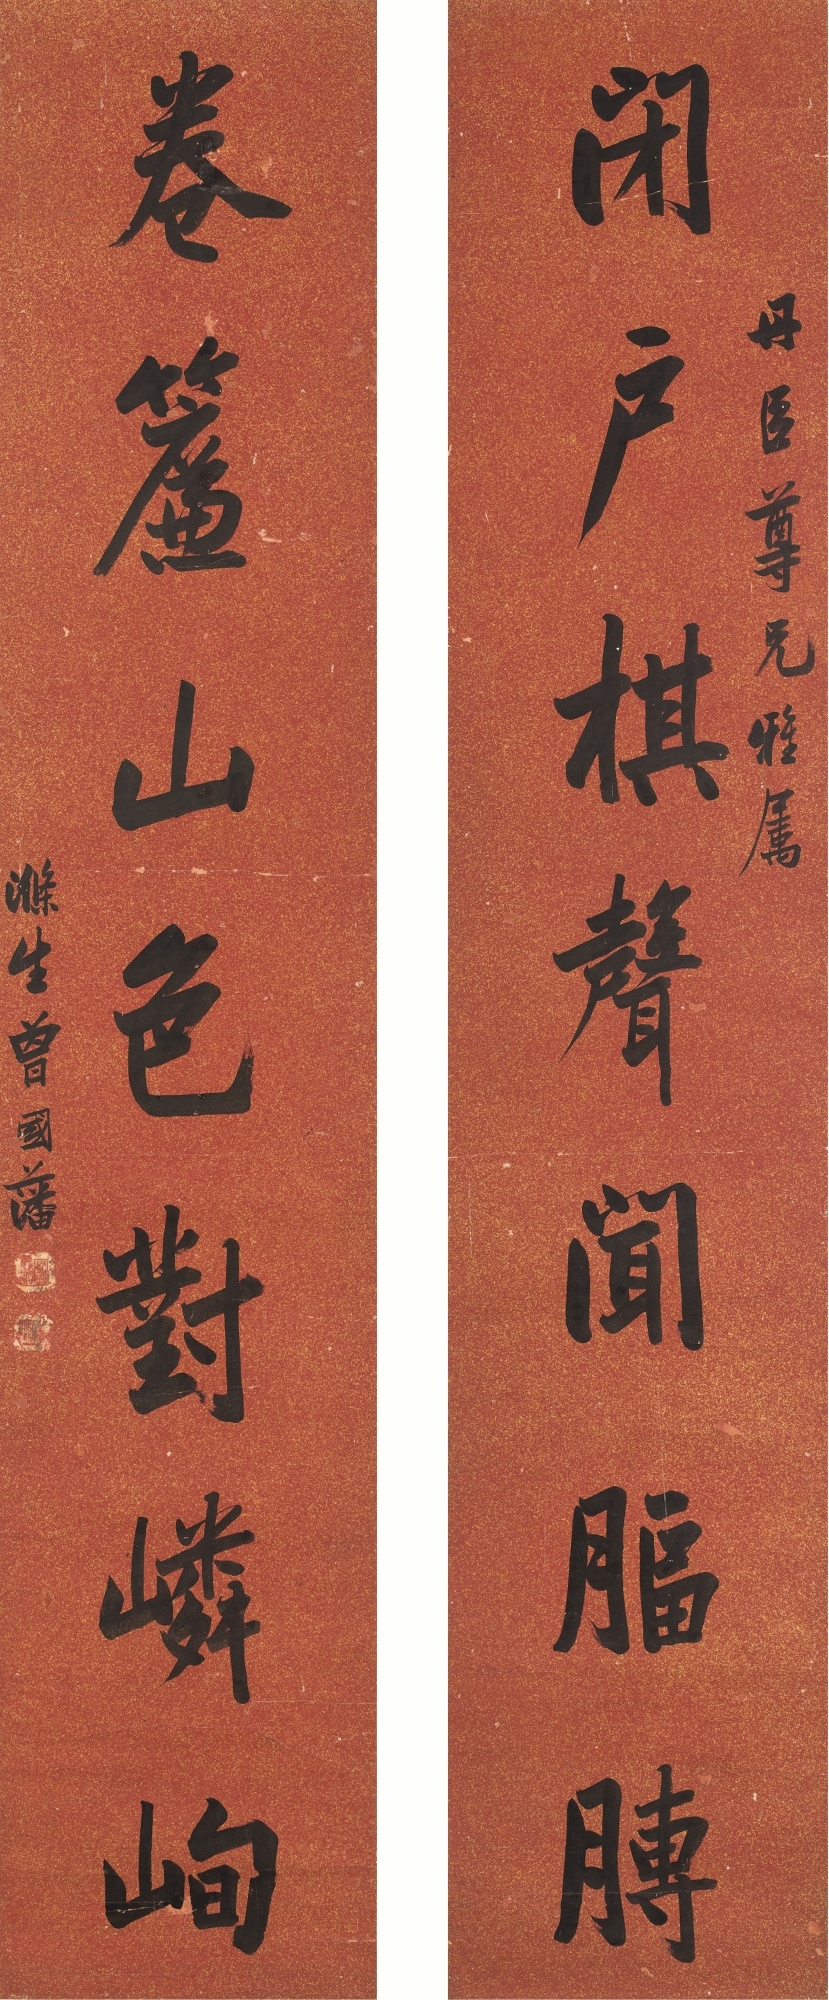 丹臣尊兄雅属
闭户棋聲聞腷膊
卷簾山色對嶙峋
滌生曾國藩